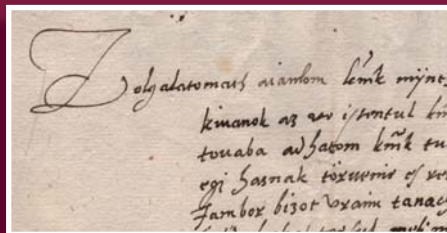 Zolgalatomath aianlom kmk mynt
kiuanok az vr istentul km
touaba adhatom kmk tu
egi hasnak töruenie es re
Jambor bizot Vraim tanac